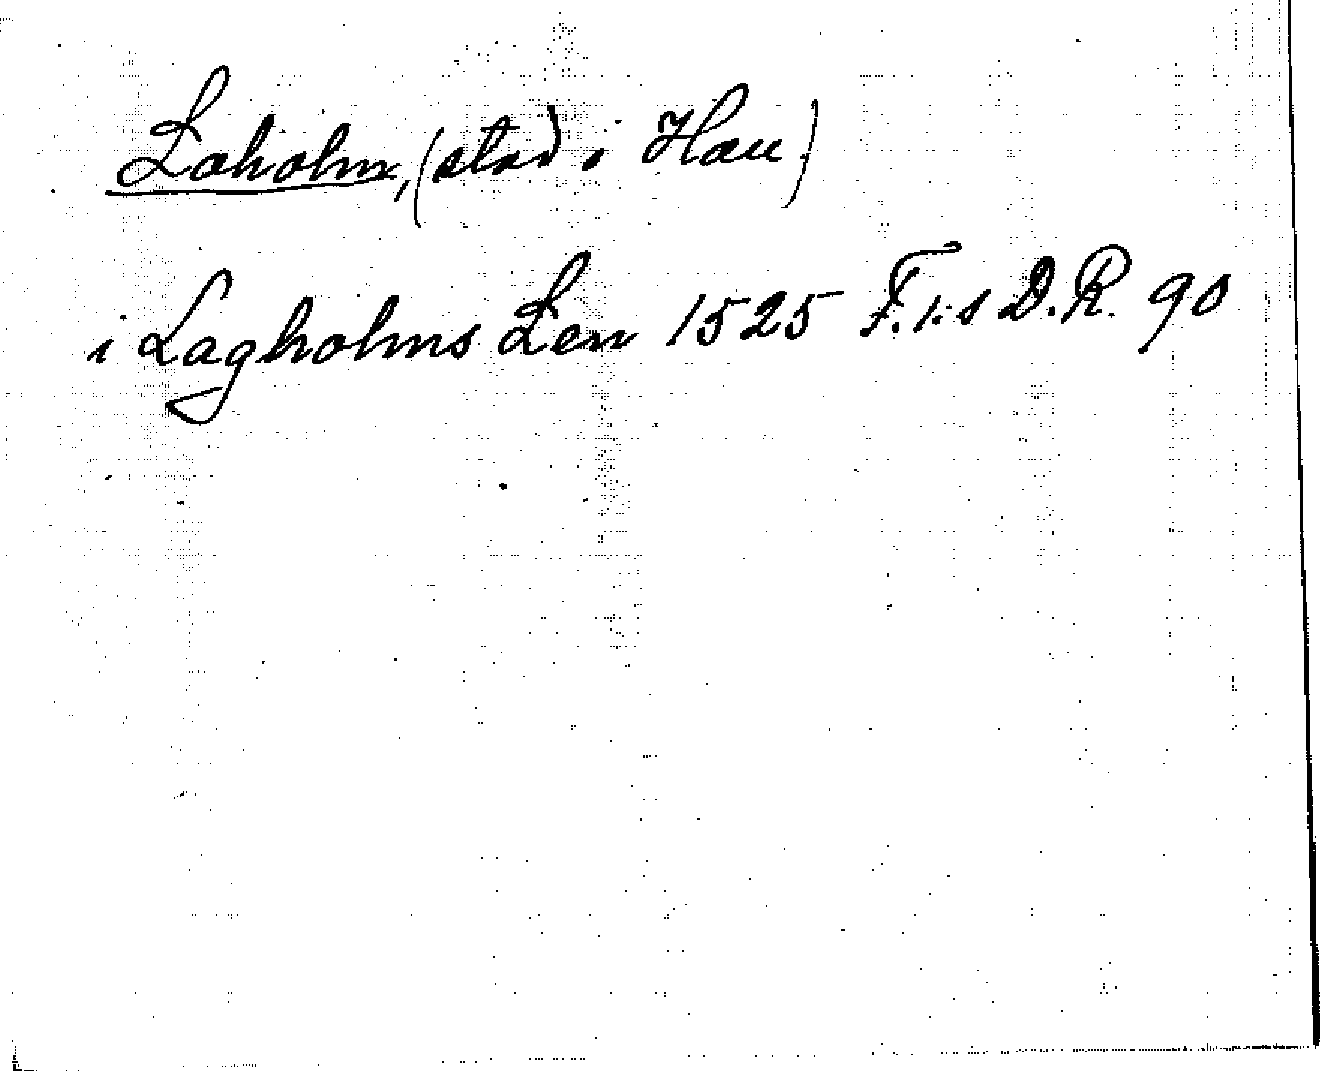 Laholm, (stad i Hall.)
i Lagholms Len 1525 F. 1:s D.R. 90